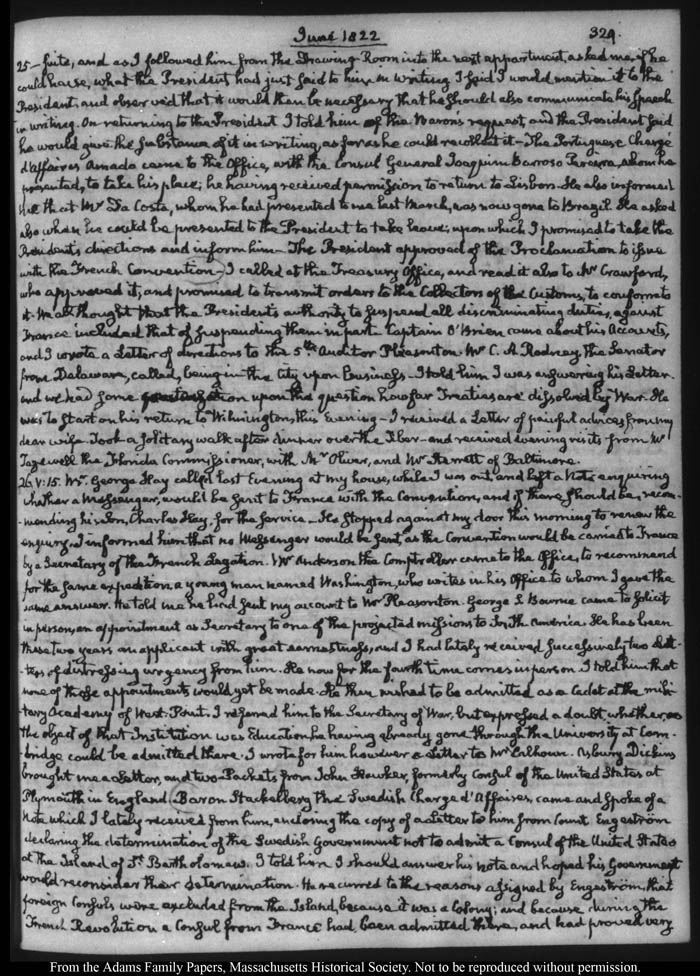 June 1822
329.
25— suite, and as I followed him from the Drawing Room into the next appartment, asked me, if he
could have, what the President had just said to him in writing I said I would mention it to the
President and observed that it would then be necessary that he should also communicate his Speech
in writing. On returning to the President I told him of the Baron's request, and the President said
he would give the substance of it in writing, as far as he could recollect it— The Portuguese Chargé
d'affaires Amado came to the Office, with the Consul General Joaquim Barroso Pereira, whom he
presented, to take his place; he having received permission to return to Lisbon. He also informed
me that Mr Da Costa, whom he had presented to me last March, was now gone to Brazil. He asked
also when he could be presented to the President to take leave; upon which I promised to take the
President's directions and inform him— The President approved of the Proclamation to issue
with the French Convention— I called at the Treasury Office, and read it also to Mr Crawford,
who approved it; and promised to transmit orders to the Collectors of the Customs, to conform to
it. We all thought that the President's authority to suspend all discriminating duties, against
France included that of suspending them in part. Captain O'Brien came about his Accounts,
and I wrote a Letter of directions to the 5th Auditor Pleasonton. Mr C. A. Rodney, the Senator
from Delaware, called, being in the City upon business. I told him I was answering his Letter.
and we had some upon the question how far Treaties are dissolved by War. He
was to start on his return to Wilmington, this Evening— I received a Letter of painful advices from my
dear wife. Took a solitary walk after dinner over the Tiber— and received evening visits from Mr
Tazewell the Florida Commissioner, with Mr Oliver, and Mr Sterrett of Baltimore.
26. V:15. Mr George Hay called last Evening at my house, while I was out, and left a Note enquiring
whether a Messenger, would be sent to France with the Convention, and if there should be, recom-
mending his Son, Charles Hay, for the service— He stopped again at my door this morning to renew the
enquiry. I informed him that no Messenger would be sent, as the Convention would be carried to France
by a Secretary of the French Legation. Mr Anderson the Comptroller came to the Office, to recommend
for the same expedition, a young man named Washington, who writes in his Office to whom I gave the
same answer. He told me he had sent my account to Mr Pleasonton. George S Bourne came to solicit
in person, an appointment as Secretary to one of the projected missions to South America. He has been
these two years an applicant with great earnestness, and I had lately received successively two Let-
ters of distressing urgency from him. He now for the fourth time comes in person. I told him that
none of those appointments would yet be made. He then wished to be admitted as a Cadet at the mili-
tary Academy of West-Point. I referred him to the Secretary of War, but expressed a doubt, whether, as
the object of that Institution was Education, he having already gone through the University at Cam-
bridge could be admitted there. I wrote for him however a Letter to Mr Calhoun. Asbury Dickins
brought me a Letter, and two Packets from John Hawker, formerly Consul of the United States at
Plymouth in England. Baron Stackelberg the Swedish Charge d'Affaires, came and spoke of a
Note which I lately received from him, enclosing the copy of a Letter to him from Count Engeström
declaring the determination of the Swedish Government not to admit a Consul of the United States
at the Island of St Bartholomews. I told him I should answer his note and hoped his Government
would reconsider their determination. He recurred to the reasons assigned by Engeström, that
foreign Consuls were excluded from the Island, because it was a Colony; and because during the
French Revolution a Consul from France had been admitted there, and had proved very
From the Adams Family Papers, Massachusetts Historical Society. Not to be reproduced without permission.